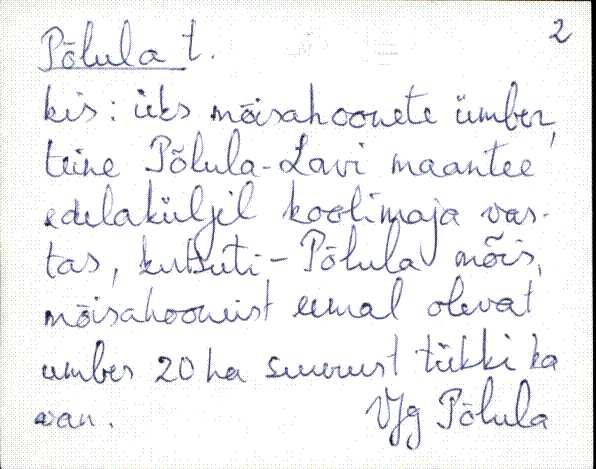 2
Põlula t.
kis: üks mõisahoonete ümber,
teine Põlula-Lavi maantee
edelaküljel koolimaja vas-
tas, kutsuti - Põlula mõis,
mõisahooneist eemal olevat
umber 20 ha suurust tükki ka
Vjg Põlula